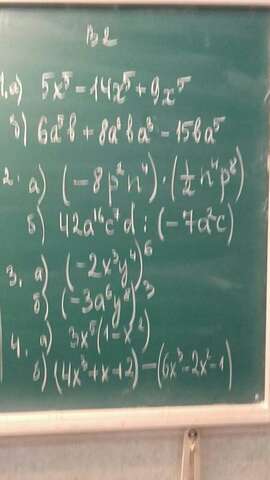 В2
1, а) 5x⁵ - 14x⁵ + 9x⁵
б) 6a⁵b + 8a²ba³ - 15ba⁵
2. а) (-8p²n⁴) · (½n⁴p⁸)
б) 42a¹⁶c⁷d : (-7a²c)
3, а) (-2x³y⁴)⁶
б) (-3a⁶y⁸)³
4. а) 3x⁵(1-x²)
б) (4x³+x+2) - (6x³-2x²-1)